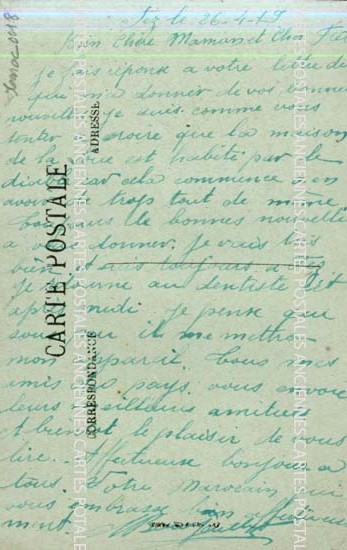 Fez le 26-4-19
Bien Chère Maman et Cher Frère
je fais réponse a votre lettre du
qui m'a donner de vos bonnes
nouvelles je suis comme vous
tenter croire que la maison
de la rue est habité par le
diable car cela commence a en
avoir trop tout de même
de bonnes nouvelles
a vous donner. Je vais très
bien et suis toujours a Fez
Je retourne au dentiste cet
après midi je pense que
il me mettra
mon appareil Tous mes
amis du pays vous envoie
leurs meilleurs amitiés
et bientot le plaisir de vous
lire. Affectueuse bonjour a
tous Votre Marocain qui
vous embrasse bien affectueuse
ment.
CARTE POSTALE
CORRESPONDANCE
ADRESSE
CARTES POSTALES ANCIENNES